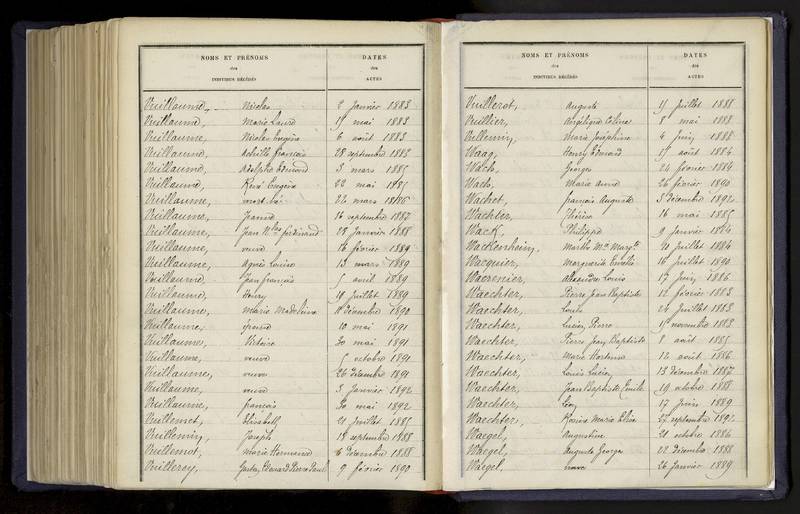 NOMS ET PRÉNOMS
des
INDIVIDUS DÉCÉDÉS
DATES
des
ACTES
Vuillaume, Nicolas 2 Janvier 1883
Vuillaume, Marie Laure 1er mai 1883
Vuillaume, Nicolas Eugène 6 août 1883
Vuillaume, Achille françois 28 septembre 1883
Vuillaume, Adolphe Edmond 3 mars 1885
Vuillaume, René Eugène 22 mai 1885
Vuillaume, mort-né 24 mars 1886
Vuillaume, Jeanne 16 septembre 1887
Vuillaume, Jean N.las ferdinand 28 Janvier 1888
Vuillaume, veuve 16 février 1889
Vuillaume, Agnès Louise 13 mars 1889
Vuillaume, Jean françois 5 avril 1889
Vuillaume, Henry 19 Juillet 1889
Vuillaume, Marie Madeleine 11 Décembre 1890
Vuillaume, 10 mai 1891
Vuillaume, Victoire 30 mai 1891
Vuillaume, veuve 5 octobre 1891
Vuillaume, veuve 26 décembre 1891
Vuillaume, veuve 3 Janvier 1892
Vuillaume, françois 30 mai 1892
Vuillemet, Elisabeth 21 Juillet 1885
Vuillemin, Joseph 19 septembre 1888
Vuillemot, Marie Hermance 6 décembre 1888
Vuilleroy, Gustave Edouard Pierre Paul 9 février 1890
NOMS ET PRÉNOMS
des
INDIVIDUS DÉCÉDÉS
DATES
des
ACTES
Vuillerot, Auguste 15 Juillet 1888
Vuillier, Angélique Céline 8 mai 1888
Vullemin, Marie Joséphine 4 Juin 1888
Waag, Henry Edouard 15 août 1886
Wach, Georges 24 février 1884
Wach, Marie Anne 26 février 1890
Wachet, françois Auguste 3 Décembre 1892
Wachter, Thérèse 16 mai 1885
Wack, Philippe 9 Janvier 1884
Wackersheim, Marthe Mie Margte 20 Juillet 1886
Wacquier, Marguerite Emélie 16 Juillet 1890
Waerenier, Alexandre Louis 17 Juin 1886
Waechter, Pierre Jean Baptiste 12 février 1883
Waechter, Louis 24 Juillet 1883
Waechter, Lucien Pierre 15 novembre 1883
Waechter, Pierre Jean Baptiste 8 août 1885
Waechter, Marie Hortense 12 août 1886
Waechter, Louis Lucien 13 décembre 1887
Waechter, Jean Baptiste Emile 19 octobre 1888
Waechter, Léon 17 Juin 1889
Waechter, Marie Elise 27 septembre 1892
Waegel, Augustine 21 octobre 1886
Waegel, Auguste George 22 Décembre 1888
Waegel, 26 Janvier 1889